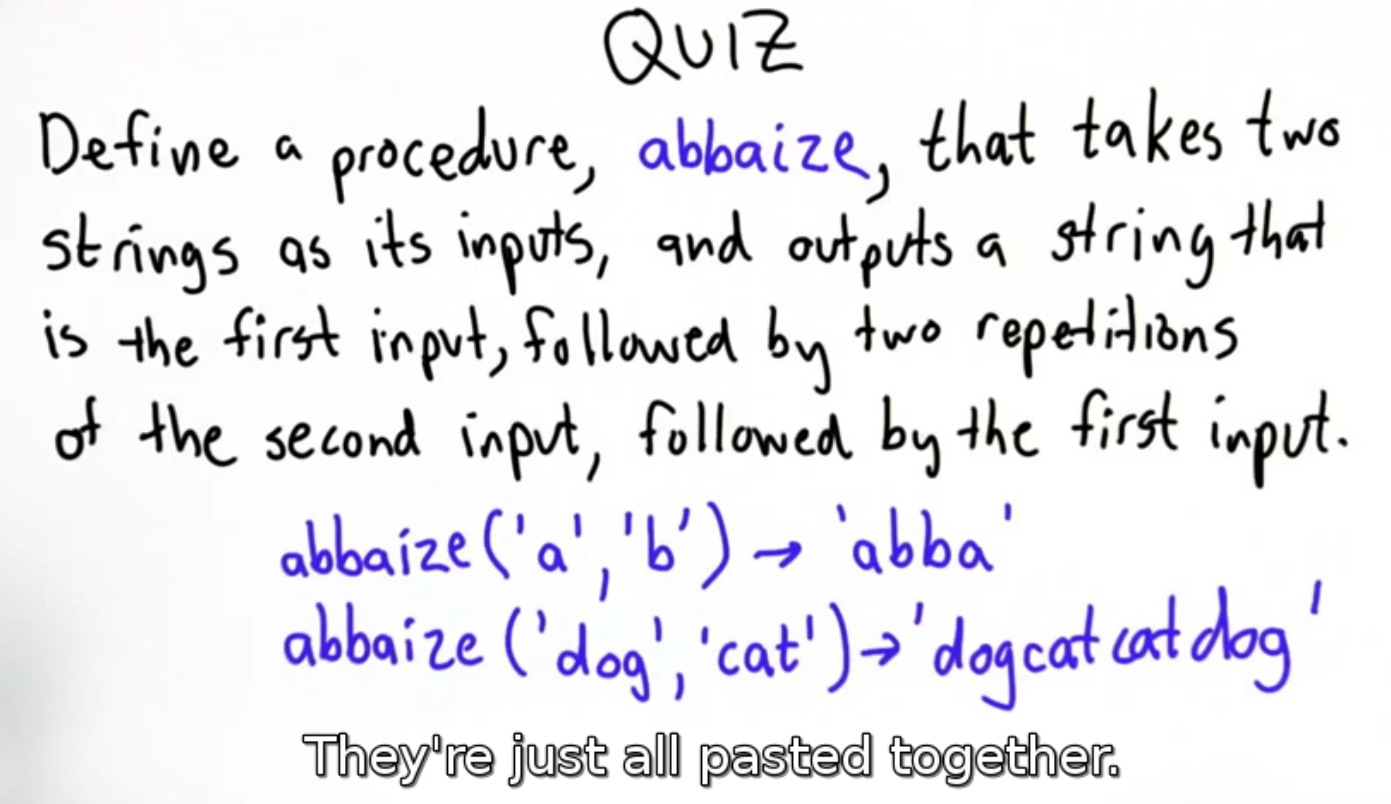 QUIZ
Define a procedure, abbaize, that takes two
strings as its inputs, and outputs a string that
is the first input, followed by two repetitions
of the second input, followed by the first input.
abbaize('a','b') → 'abba'
abbaize('dog','cat') → 'dogcatcatdog'
They're just all pasted together.